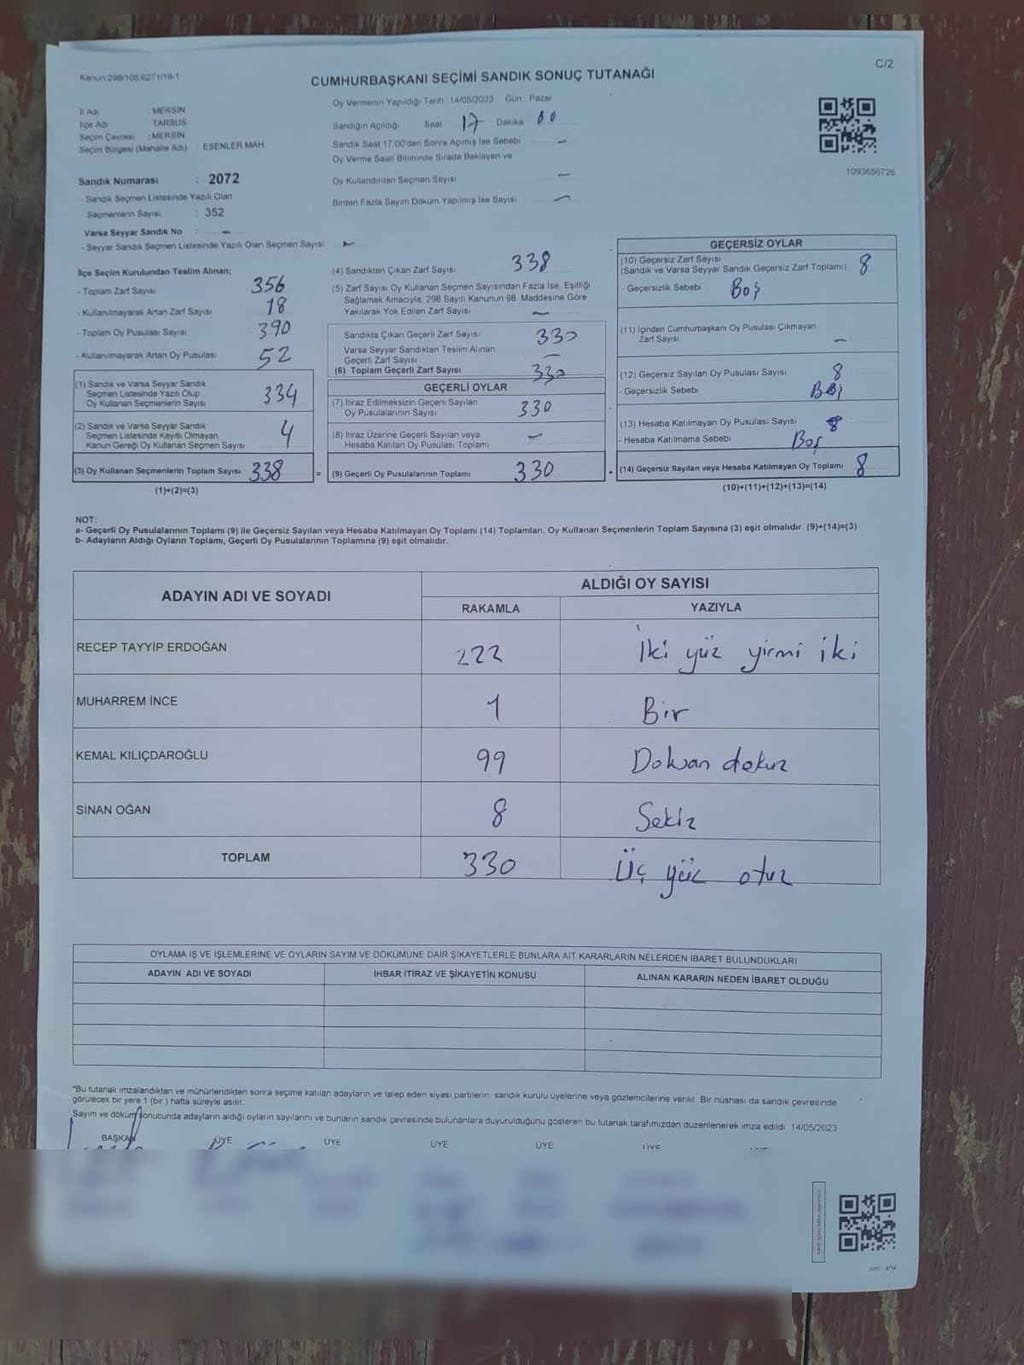 Kanun:298/105,6271/19-1
C/2
CUMHURBAŞKANI SEÇİMİ SANDIK SONUÇ TUTANAĞI
İl Adı MERSİN
İlçe Adı TARSUS
Seçim Çevresi : MERSİN
Seçim Bölgesi (Mahalle Adı) : ESENLER MAH.
Sandık Numarası : 2072
- Sandık Seçmen Listesinde Yazılı Olan
Seçmenlerin Sayısı : 352
Varsa Seyyar Sandık No : -
- Seyyar Sandık Seçmen Listesinde Yazılı Olan Seçmen Sayısı -
Oy Vermenin Yapıldığı Tarih: 14/05/2023 Gün: Pazar
Sandığın Açıldığı Saat 17 Dakika 00
Sandık Saat 17.00'den Sonra Açılmış İse Sebebi -
Oy Verme Saati Bitiminde Sırada Bekleyen ve
Oy Kullandırılan Seçmen Sayısı -
Birden Fazla Sayım Döküm Yapılmış İse Sayısı -
1093656726
İlçe Seçim Kurulundan Teslim Alınan;
- Toplam Zarf Sayısı 356
- Kullanılmayarak Artan Zarf Sayısı 18
- Toplam Oy Pusulası Sayısı 390
- Kullanılmayarak Artan Oy Pusulası 52
(1) Sandık ve Varsa Seyyar Sandık
Seçmen Listesinde Yazılı Olup
Oy Kullanan Seçmenlerin Sayısı 334
(2) Sandık ve Varsa Seyyar Sandık
Seçmen Listesinde Kayıtlı Olmayan
Kanun Gereği Oy Kullanan Seçmen Sayısı 4
(3) Oy Kullanan Seçmenlerin Toplam Sayısı 338
(1)+(2)=(3)
(4) Sandıktan Çıkan Zarf Sayısı 338
(5) Zarf Sayısı Oy Kullanan Seçmen Sayısından Fazla İse, Eşitliği
Sağlamak Amacıyla, 298 Sayılı Kanunun 98. Maddesine Göre
Yakılarak Yok Edilen Zarf Sayısı -
Sandıkta Çıkan Geçerli Zarf Sayısı 330
Varsa Seyyar Sandıktan Teslim Alınan
Geçerli Zarf Sayısı -
(6) Toplam Geçerli Zarf Sayısı 330
GEÇERLİ OYLAR
(7) İtiraz Edilmeksizin Geçerli Sayılan
Oy Pusulalarının Sayısı 330
(8) İtiraz Üzerine Geçerli Sayılan veya
Hesaba Katılan Oy Pusulası Toplamı -
= (9) Geçerli Oy Pusulalarının Toplamı 330
GEÇERSİZ OYLAR
(10) Geçersiz Zarf Sayısı
(Sandık ve Varsa Seyyar Sandık Geçersiz Zarf Toplamı) 8
- Geçersizlik Sebebi Boş
(11) İçinden Cumhurbaşkanı Oy Pusulası Çıkmayan
Zarf Sayısı -
(12) Geçersiz Sayılan Oy Pusulası Sayısı 8
- Geçersizlik Sebebi Boş
(13) Hesaba Katılmayan Oy Pusulası Sayısı 8
- Hesaba Katılmama Sebebi Boş
+ (14) Geçersiz Sayılan veya Hesaba Katılmayan Oy Toplamı 8
(10)+(11)+(12)+(13)=(14)
NOT:
a- Geçerli Oy Pusulalarının Toplamı (9) ile Geçersiz Sayılan veya Hesaba Katılmayan Oy Toplamı (14) Toplamları, Oy Kullanan Seçmenlerin Toplam Sayısına (3) eşit olmalıdır. (9)+(14)=(3)
b- Adayların Aldığı Oyların Toplamı, Geçerli Oy Pusulalarının Toplamına (9) eşit olmalıdır.
ADAYIN ADI VE SOYADI ALDIĞI OY SAYISI
RAKAMLA YAZIYLA
RECEP TAYYİP ERDOĞAN 222 İki yüz yirmi iki
MUHARREM İNCE 1 Bir
KEMAL KILIÇDAROĞLU 99 Doksan dokuz
SİNAN OĞAN 8 Sekiz
TOPLAM 330 Üç yüz otuz
OYLAMA İŞ VE İŞLEMLERİNE VE OYLARIN SAYIM VE DÖKÜMÜNE DAİR ŞİKAYETLERLE BUNLARA AİT KARARLARIN NELERDEN İBARET BULUNDUKLARI
ADAYIN ADI VE SOYADI İHBAR İTİRAZ VE ŞİKAYETİN KONUSU ALINAN KARARIN NEDEN İBARET OLDUĞU
"Bu tutanak imzalandıktan ve mühürlendikten sonra seçime katılan adayların ve talep eden siyasi partilerin sandık kurulu üyelerine veya gözlemcilerine verilir. Bir nüshası da sandık çevresinde
görülecek bir yere 1 (bir) hafta süreyle asılır.
Sayım ve döküm sonucunda adayların aldığı oyların sayılarını ve bunların sandık çevresinde bulunanlara duyurulduğunu gösteren bu tutanak tarafımızdan düzenlenerek imza edildi. 14/05/2023
BAŞKAN ÜYE ÜYE ÜYE ÜYE ÜYE